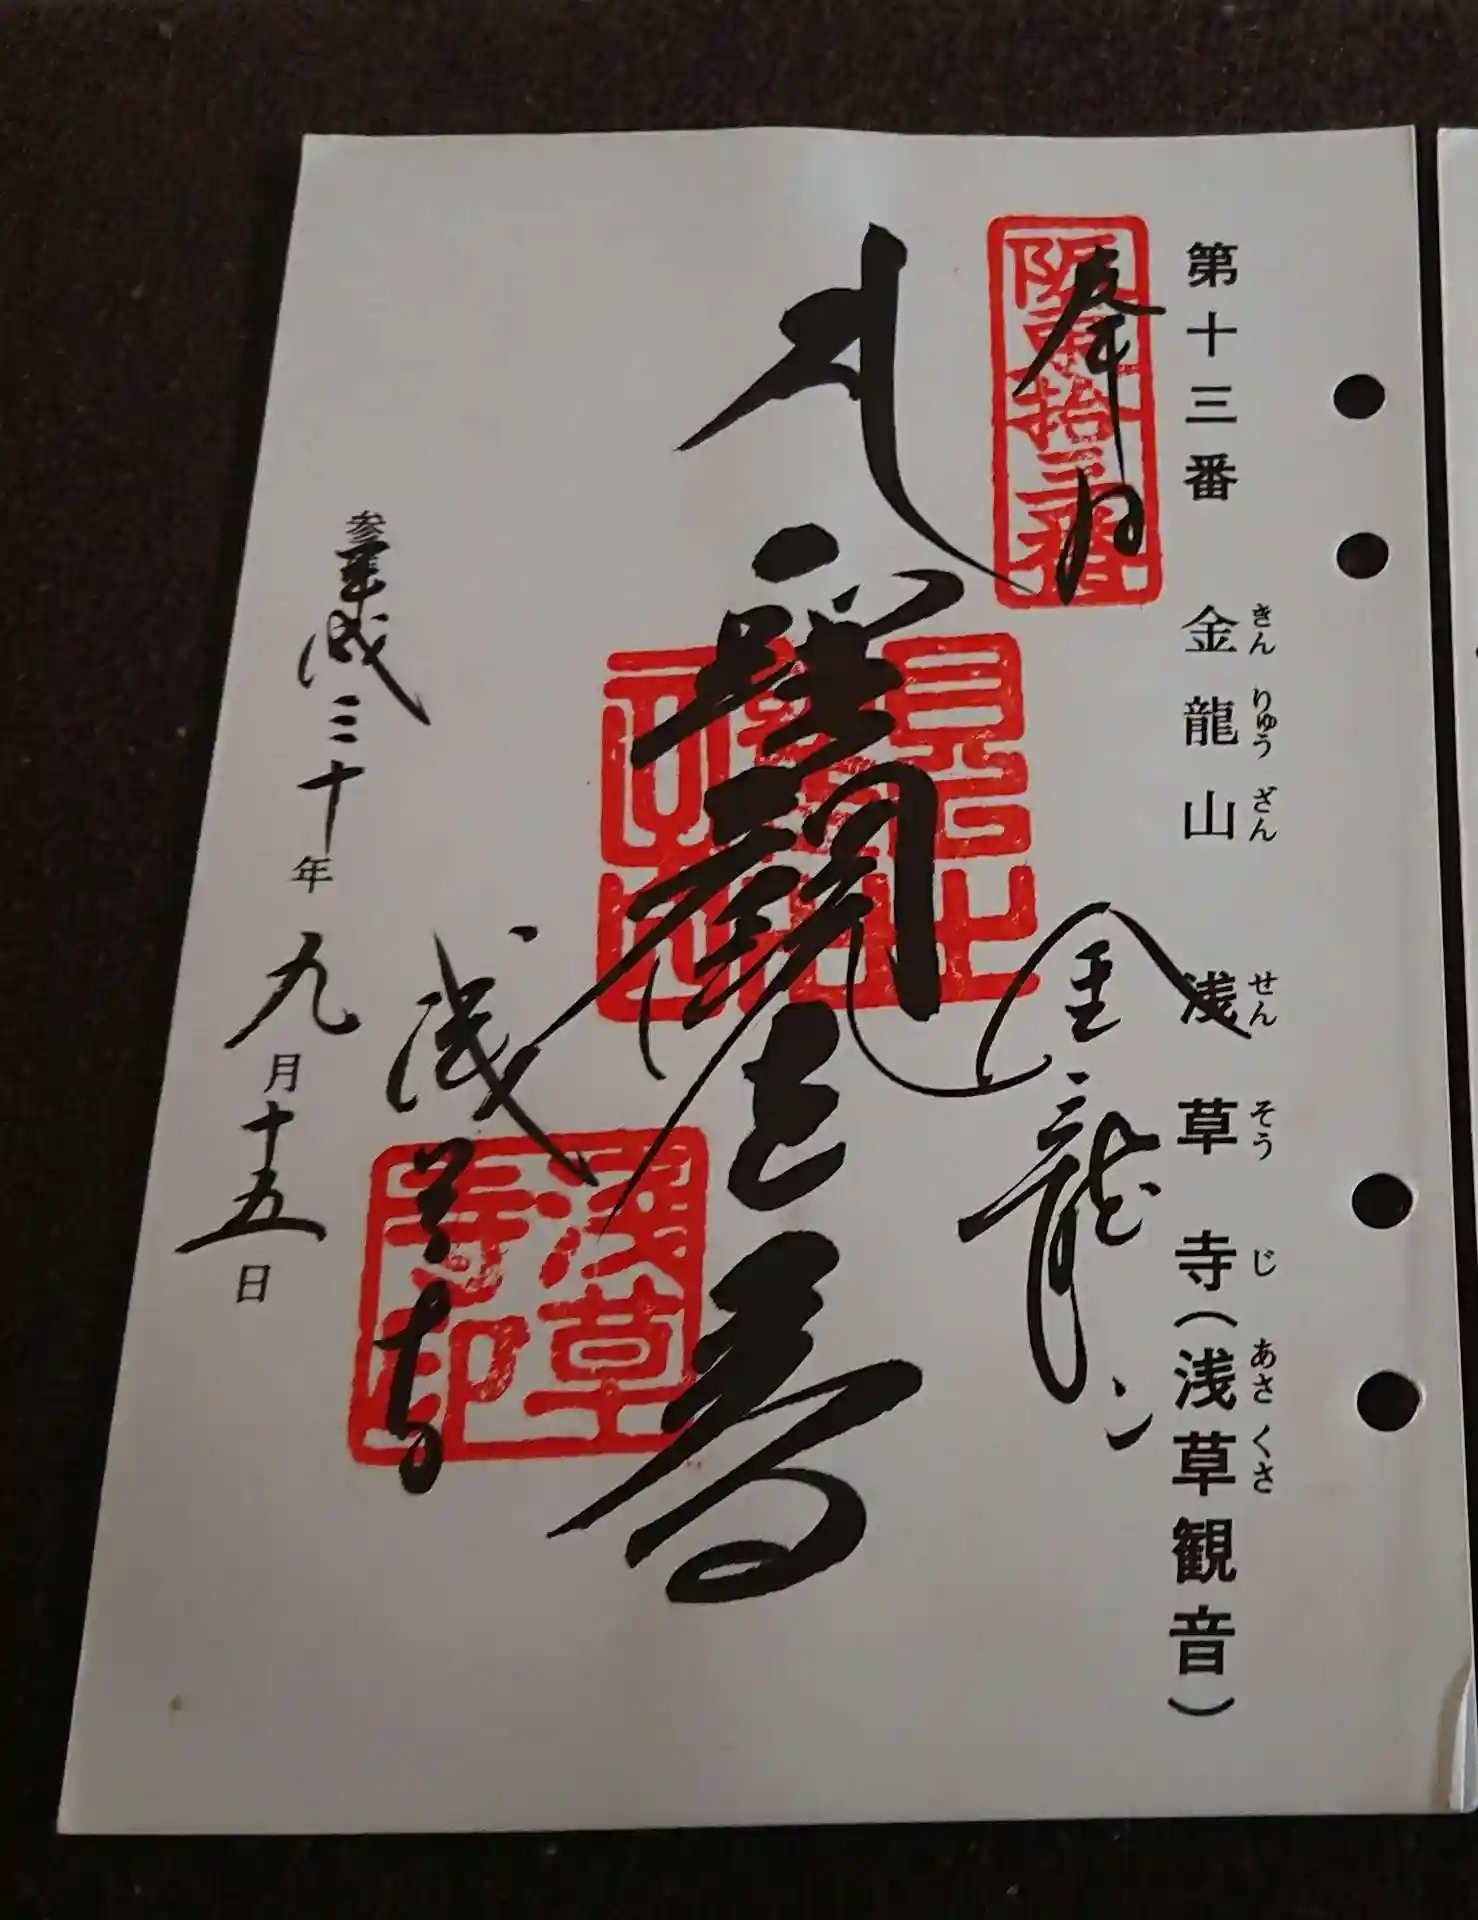 第十三番　金龍山　浅草寺(浅草観音)
きん　りゅう　ざん　せん　そう　じ　あさ　くさ
奉拝
阪東拾三番
金龍山
聖観世音
浅草寺
浅草寺印
参平成三十年九月十五日